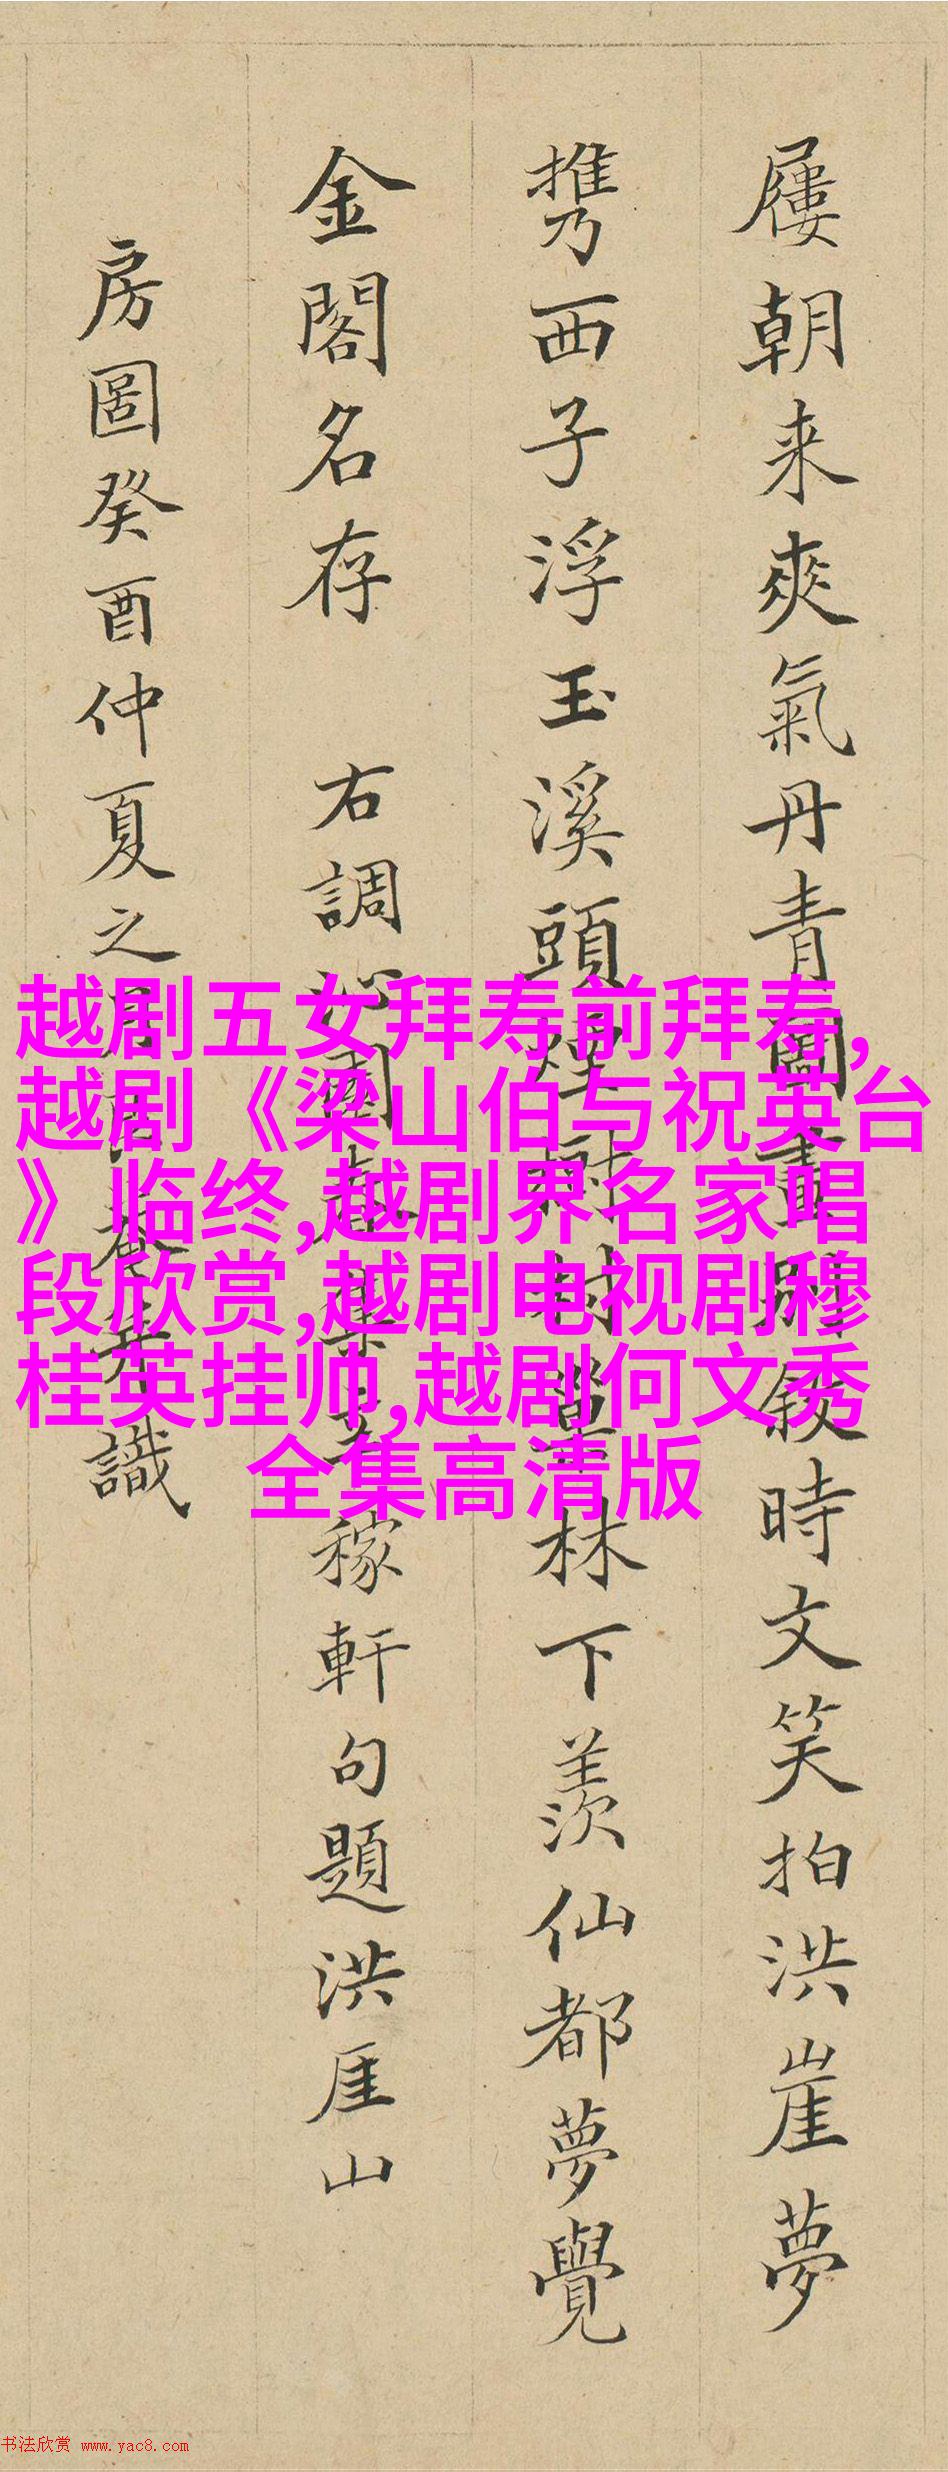 屨朝来爽氣丹青圖畫别敘時文笑拍洪崖夢
携西子浮玉溪頭煙樹村
林下羨仙都夢覺
金閣名存
右調沁園春集
稼軒句題洪厓山
房圖癸酉仲夏之
識
越剧五女拜寿前拜寿,
越剧《梁山伯与祝英台
》临终,越剧界名家唱
段欣赏,越剧电视剧穆
桂英挂帅,越剧何文秀
全集高清版
书法欣赏 www.yac8.com